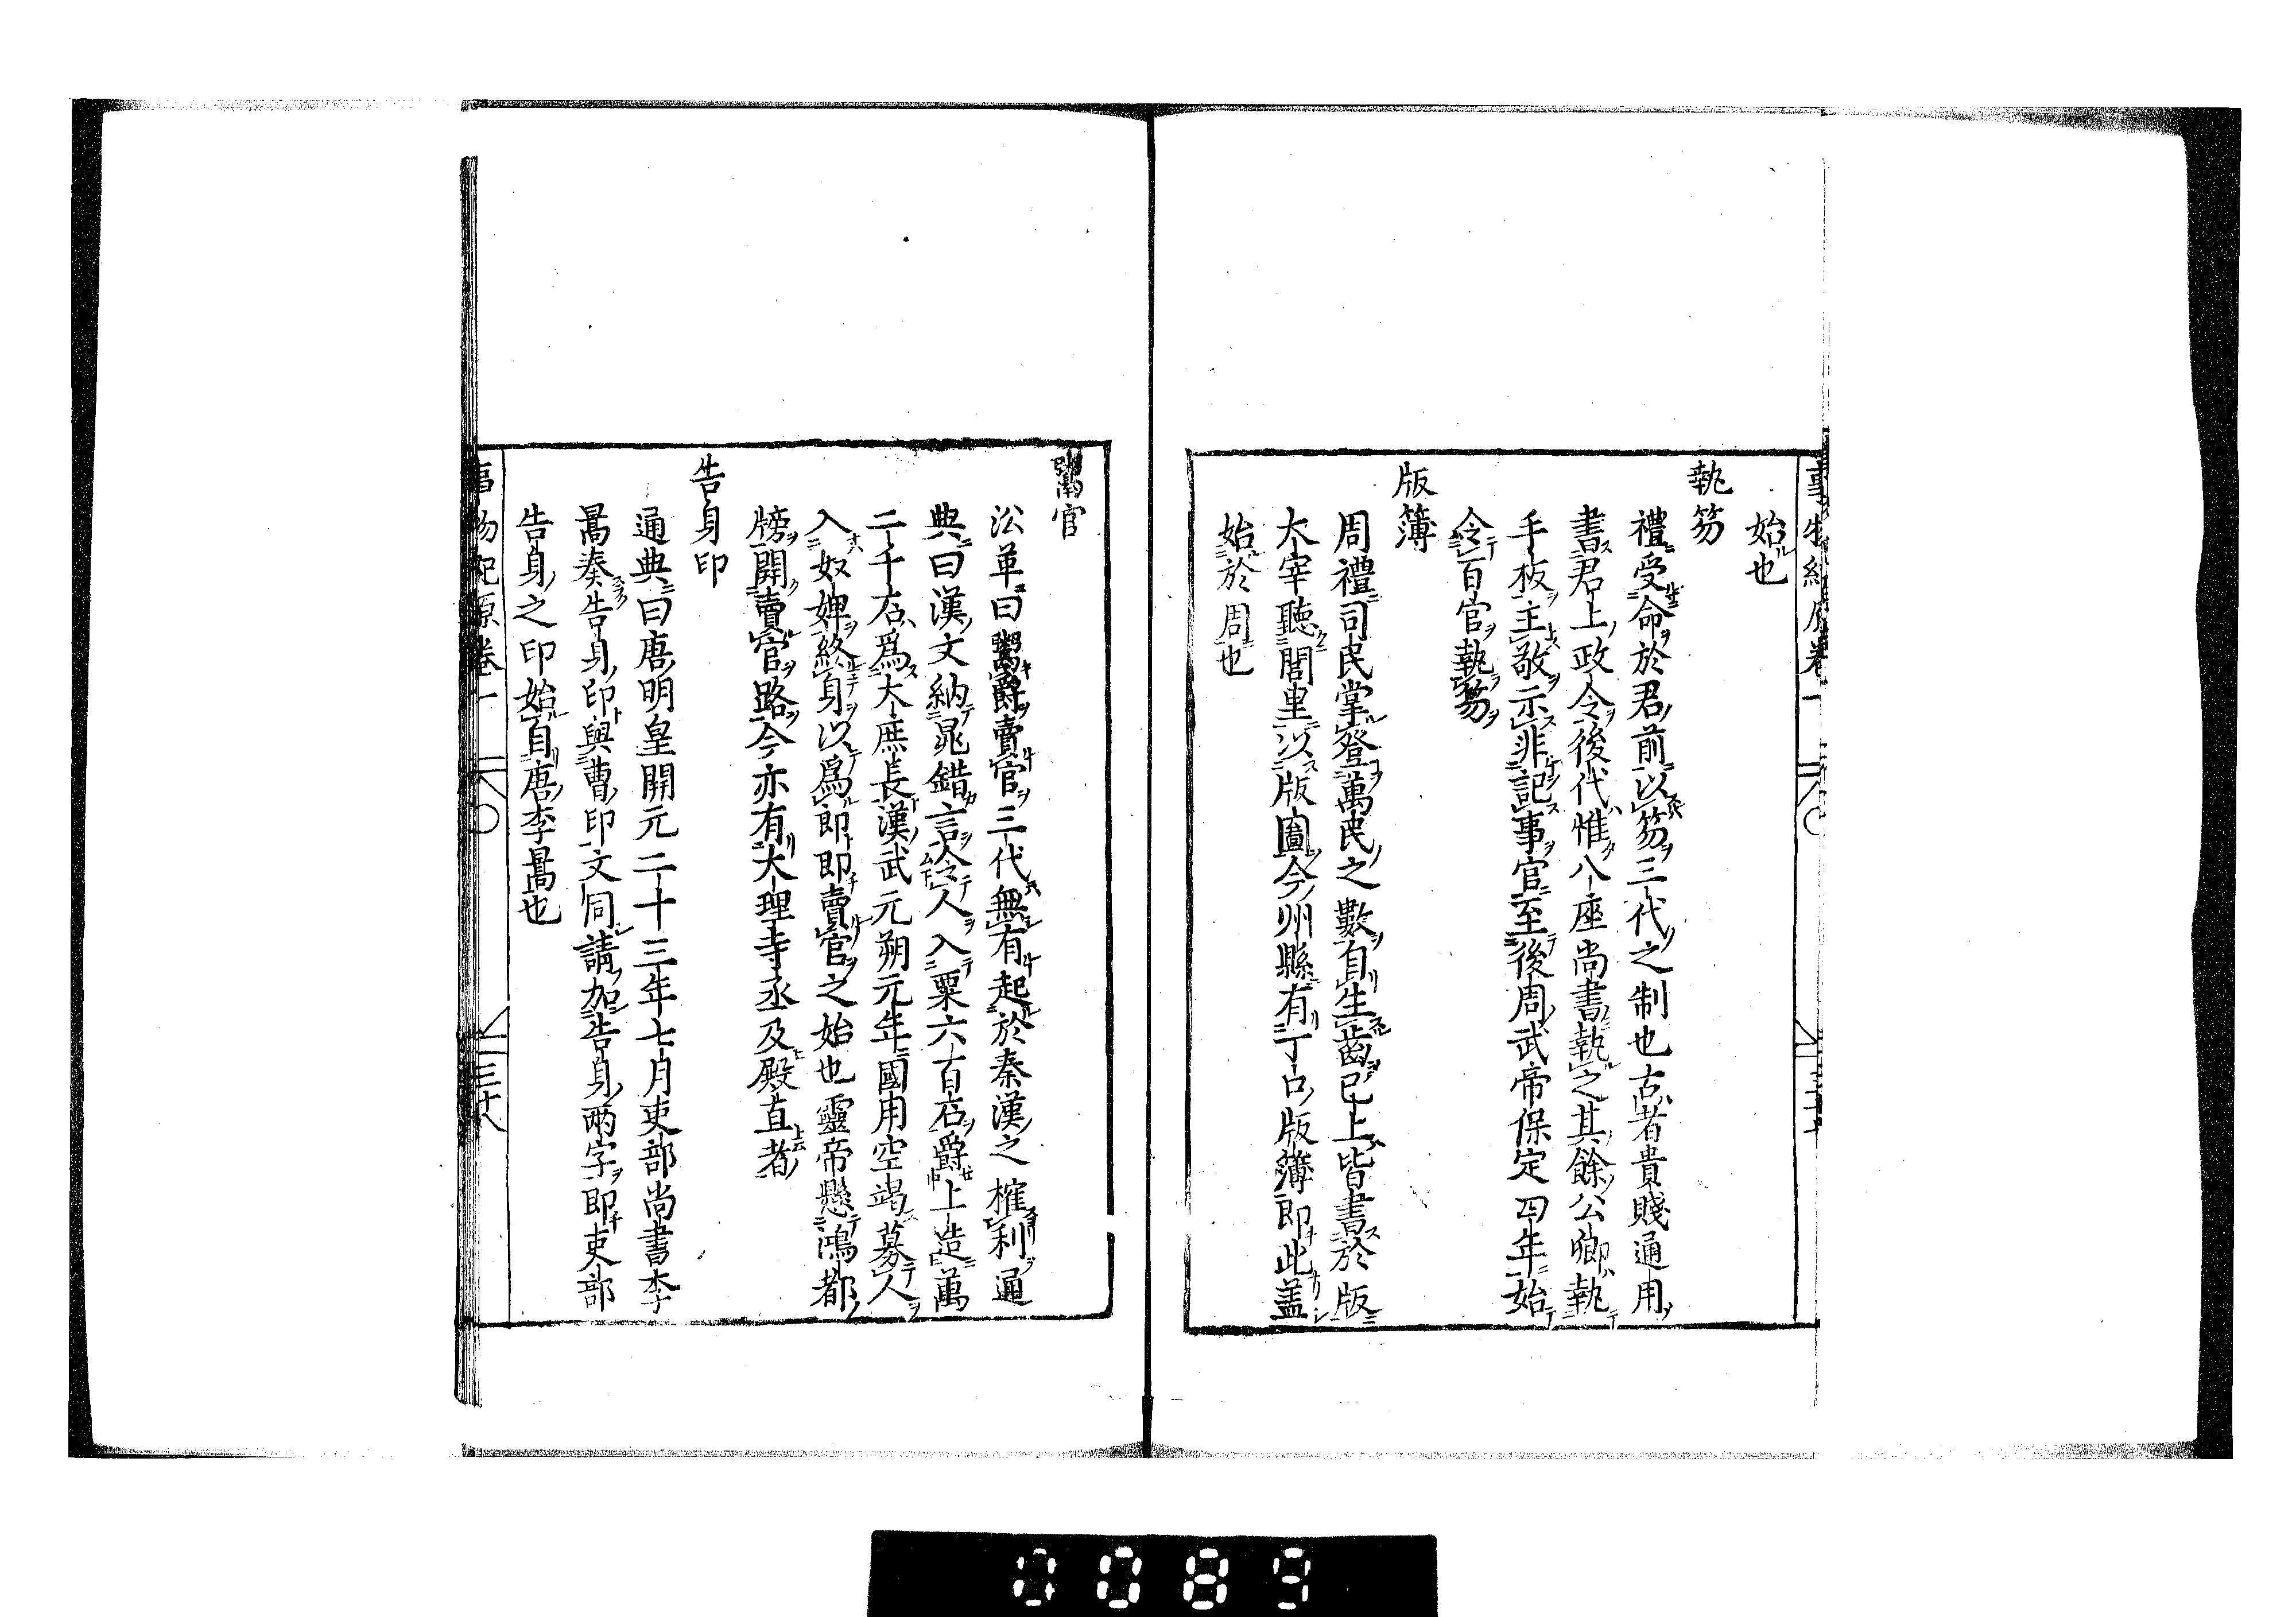 始也
執笏
禮受命於君前以笏三代之制也古者貴賤通用
書君上政令後代惟八座尚書執之其餘公卿執
手板主敬示非記事官至後周武帝保定四年始
令百官執笏
版簿
周禮司民掌登萬民之數自生齒已上皆書於版
太宰聽閭里以版圖今州縣有丁口版簿即此蓋
始於周也
鬻官
沿革曰鬻爵賣官三代無有起於秦漢之榷利通
典曰漢文納晁錯言令人入粟六百石爵上造萬
二千石爲大庶長漢武元朔元年國用空竭募人
入奴婢終身以爲郎即賣官之始也靈帝懸鴻都
牓開賣官路今亦有大理寺丞及殿直者
告身印
通典曰唐明皇開元二十三年七月吏部尚書李
暠奏告身印與曹印文同請加告身兩字即吏部
告身之印始自唐李暠也
事物紀原卷一 三十八
0089